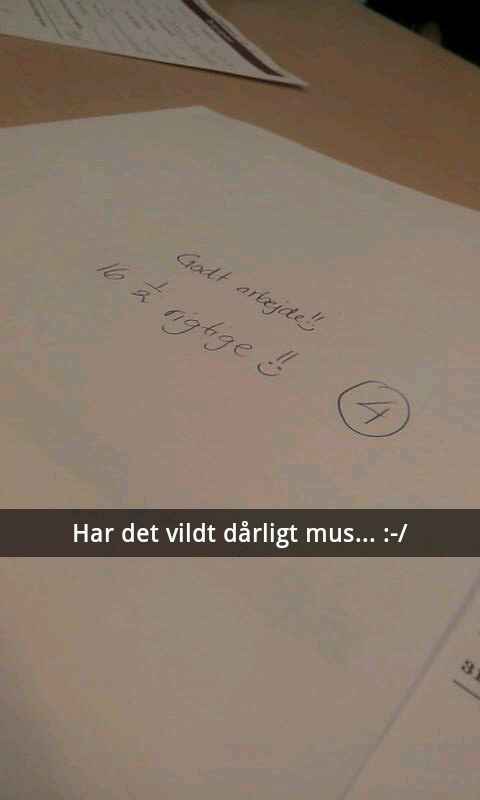 Godt arbejde!!
16 1/2 rigtige !!
4
Har det vildt dårligt mus... :-/